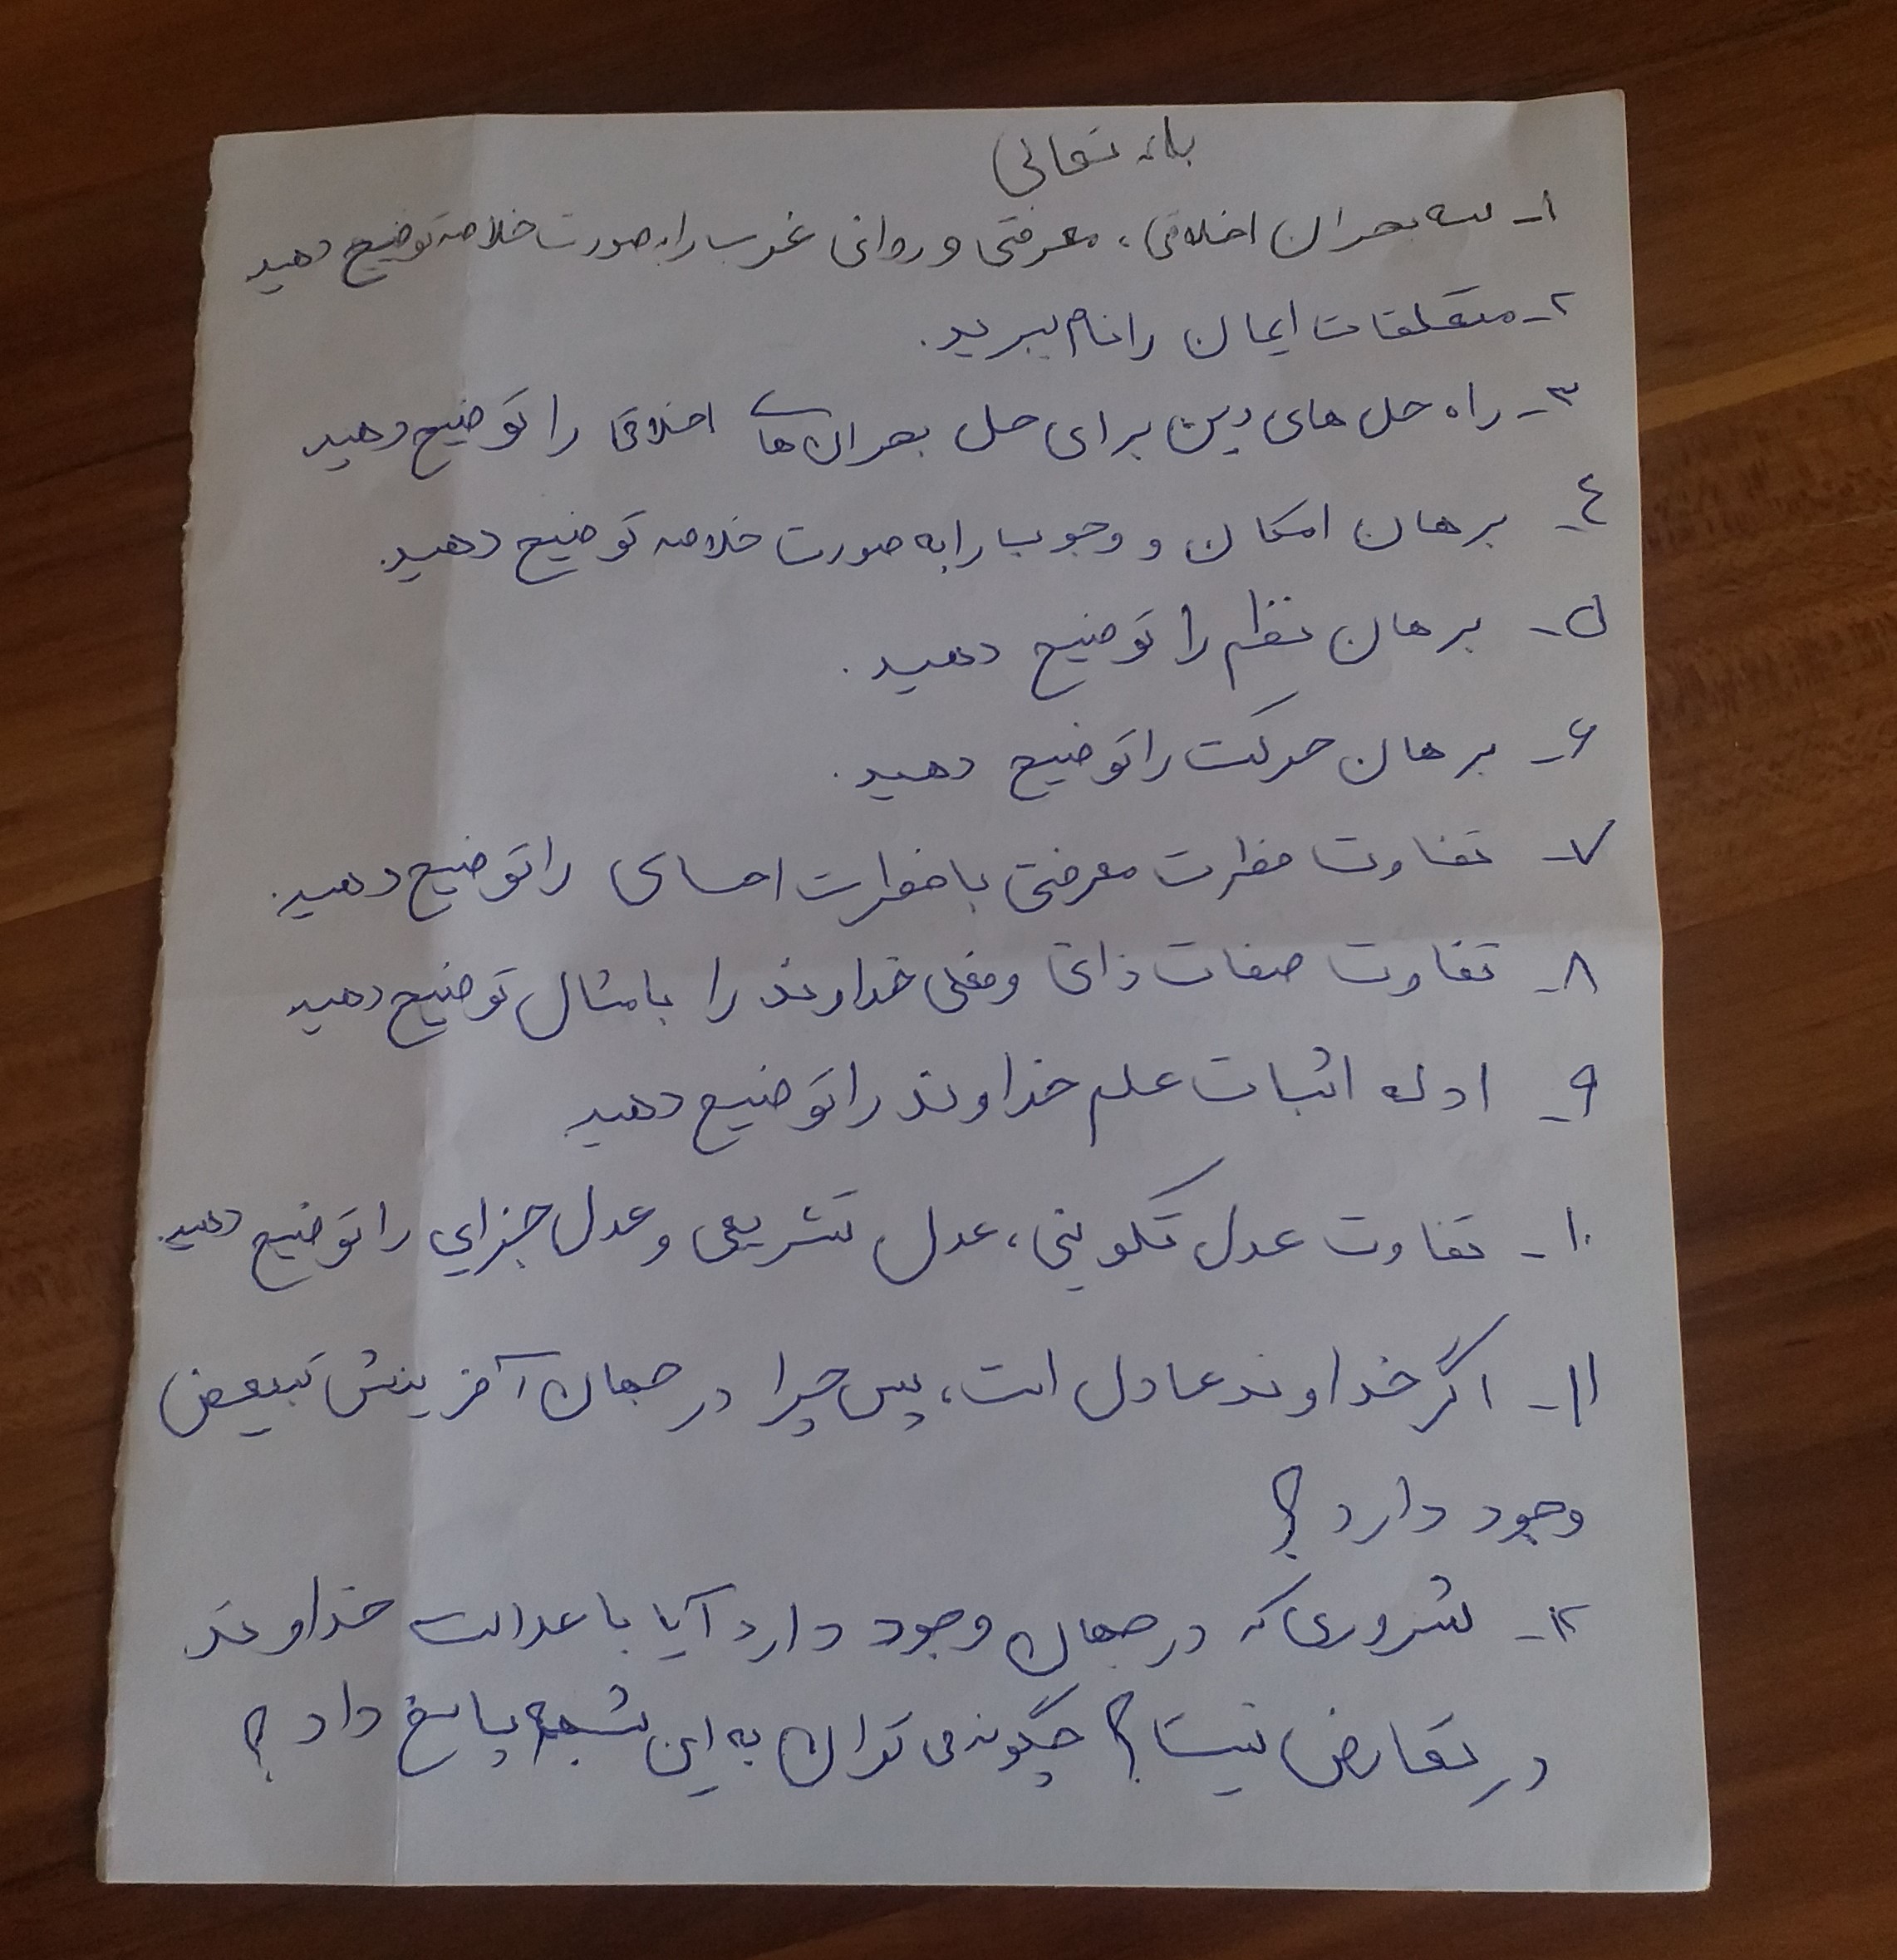 باسمه تعالی
۱- سه بحران اخلاقی، معرفتی و روانی غرب را به صورت خلاصه توضیح دهید
۲- متعلقات ایمان را نام ببرید.
۳- راه حل های دین برای حل بحران‌های اخلاقی را توضیح دهید
۴- برهان امکان و وجوب را به صورت خلاصه توضیح دهید.
۵- برهان نظم را توضیح دهید.
۶- برهان حرکت را توضیح دهید.
۷- تفاوت فطرت معرفتی با فطرت احساسی را توضیح دهید.
۸- تفاوت صفات ذاتی و فعلی خداوند را با مثال توضیح دهید
۹- ادله اثبات علم خداوند را توضیح دهید
۱۰- تفاوت عدل تکوینی، عدل تشریعی و عدل جزایی را توضیح دهید.
۱۱- اگر خداوند عادل است، پس چرا در جهان آفرینش تبعیض
وجود دارد؟
۱۲- شروری که در جهان وجود دارد آیا با عدالت خداوند
در تعارض نیست؟ چگونه می توان به این شبهه پاسخ داد؟